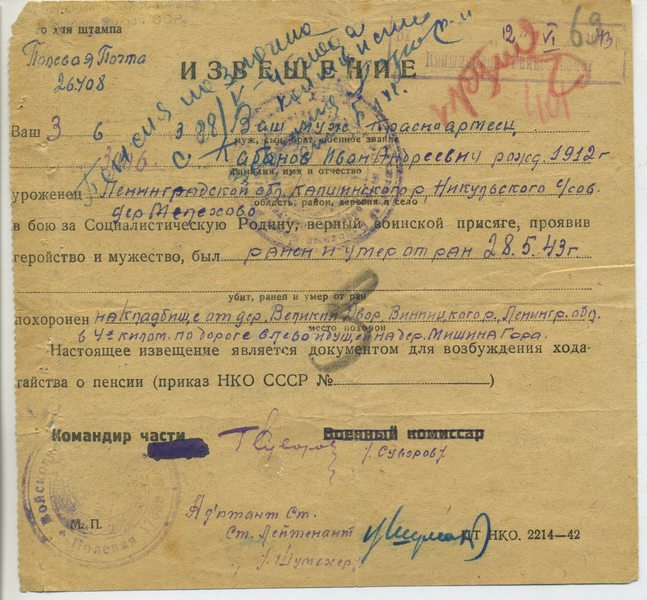 го для штампа
Полевая Почта
26408
12 VI 43
69
ИЗВЕЩЕНИЕ
Пенсия назначена
с 28/V-
Ваш Ваш муж Красноармеец
муж, сын, брат, военное звание
Хабанов Иван Андреевич рожд. 1912 г
фамилия, имя и отчество
уроженец Ленинградской обл. Капшинского р, Никульского с/сов.
область, район, деревня и село
дер Мелехово
в бою за Социалистическую Родину, верный воинской присяге, проявив
геройство и мужество, был ранен и умер от ран 28.5.43г
убит, ранен и умер от ран
похоронен на кладбище от дер. Великий Двор Винницкого р, Ленингр. обл.
место похорон
в 4х килом. по дороге влево идущей на дер. Мишина Гора.
Настоящее извещение является документом для возбуждения хода-
тайства о пенсии (приказ НКО СССР № )
Командир части Военный комиссар
Суворов /Суворов/.
Войсков
Полевая
М. П.
Адъютант Ст.
Ст. Лейтенант
/Шумахер/
ДТ НКО. 2214—42